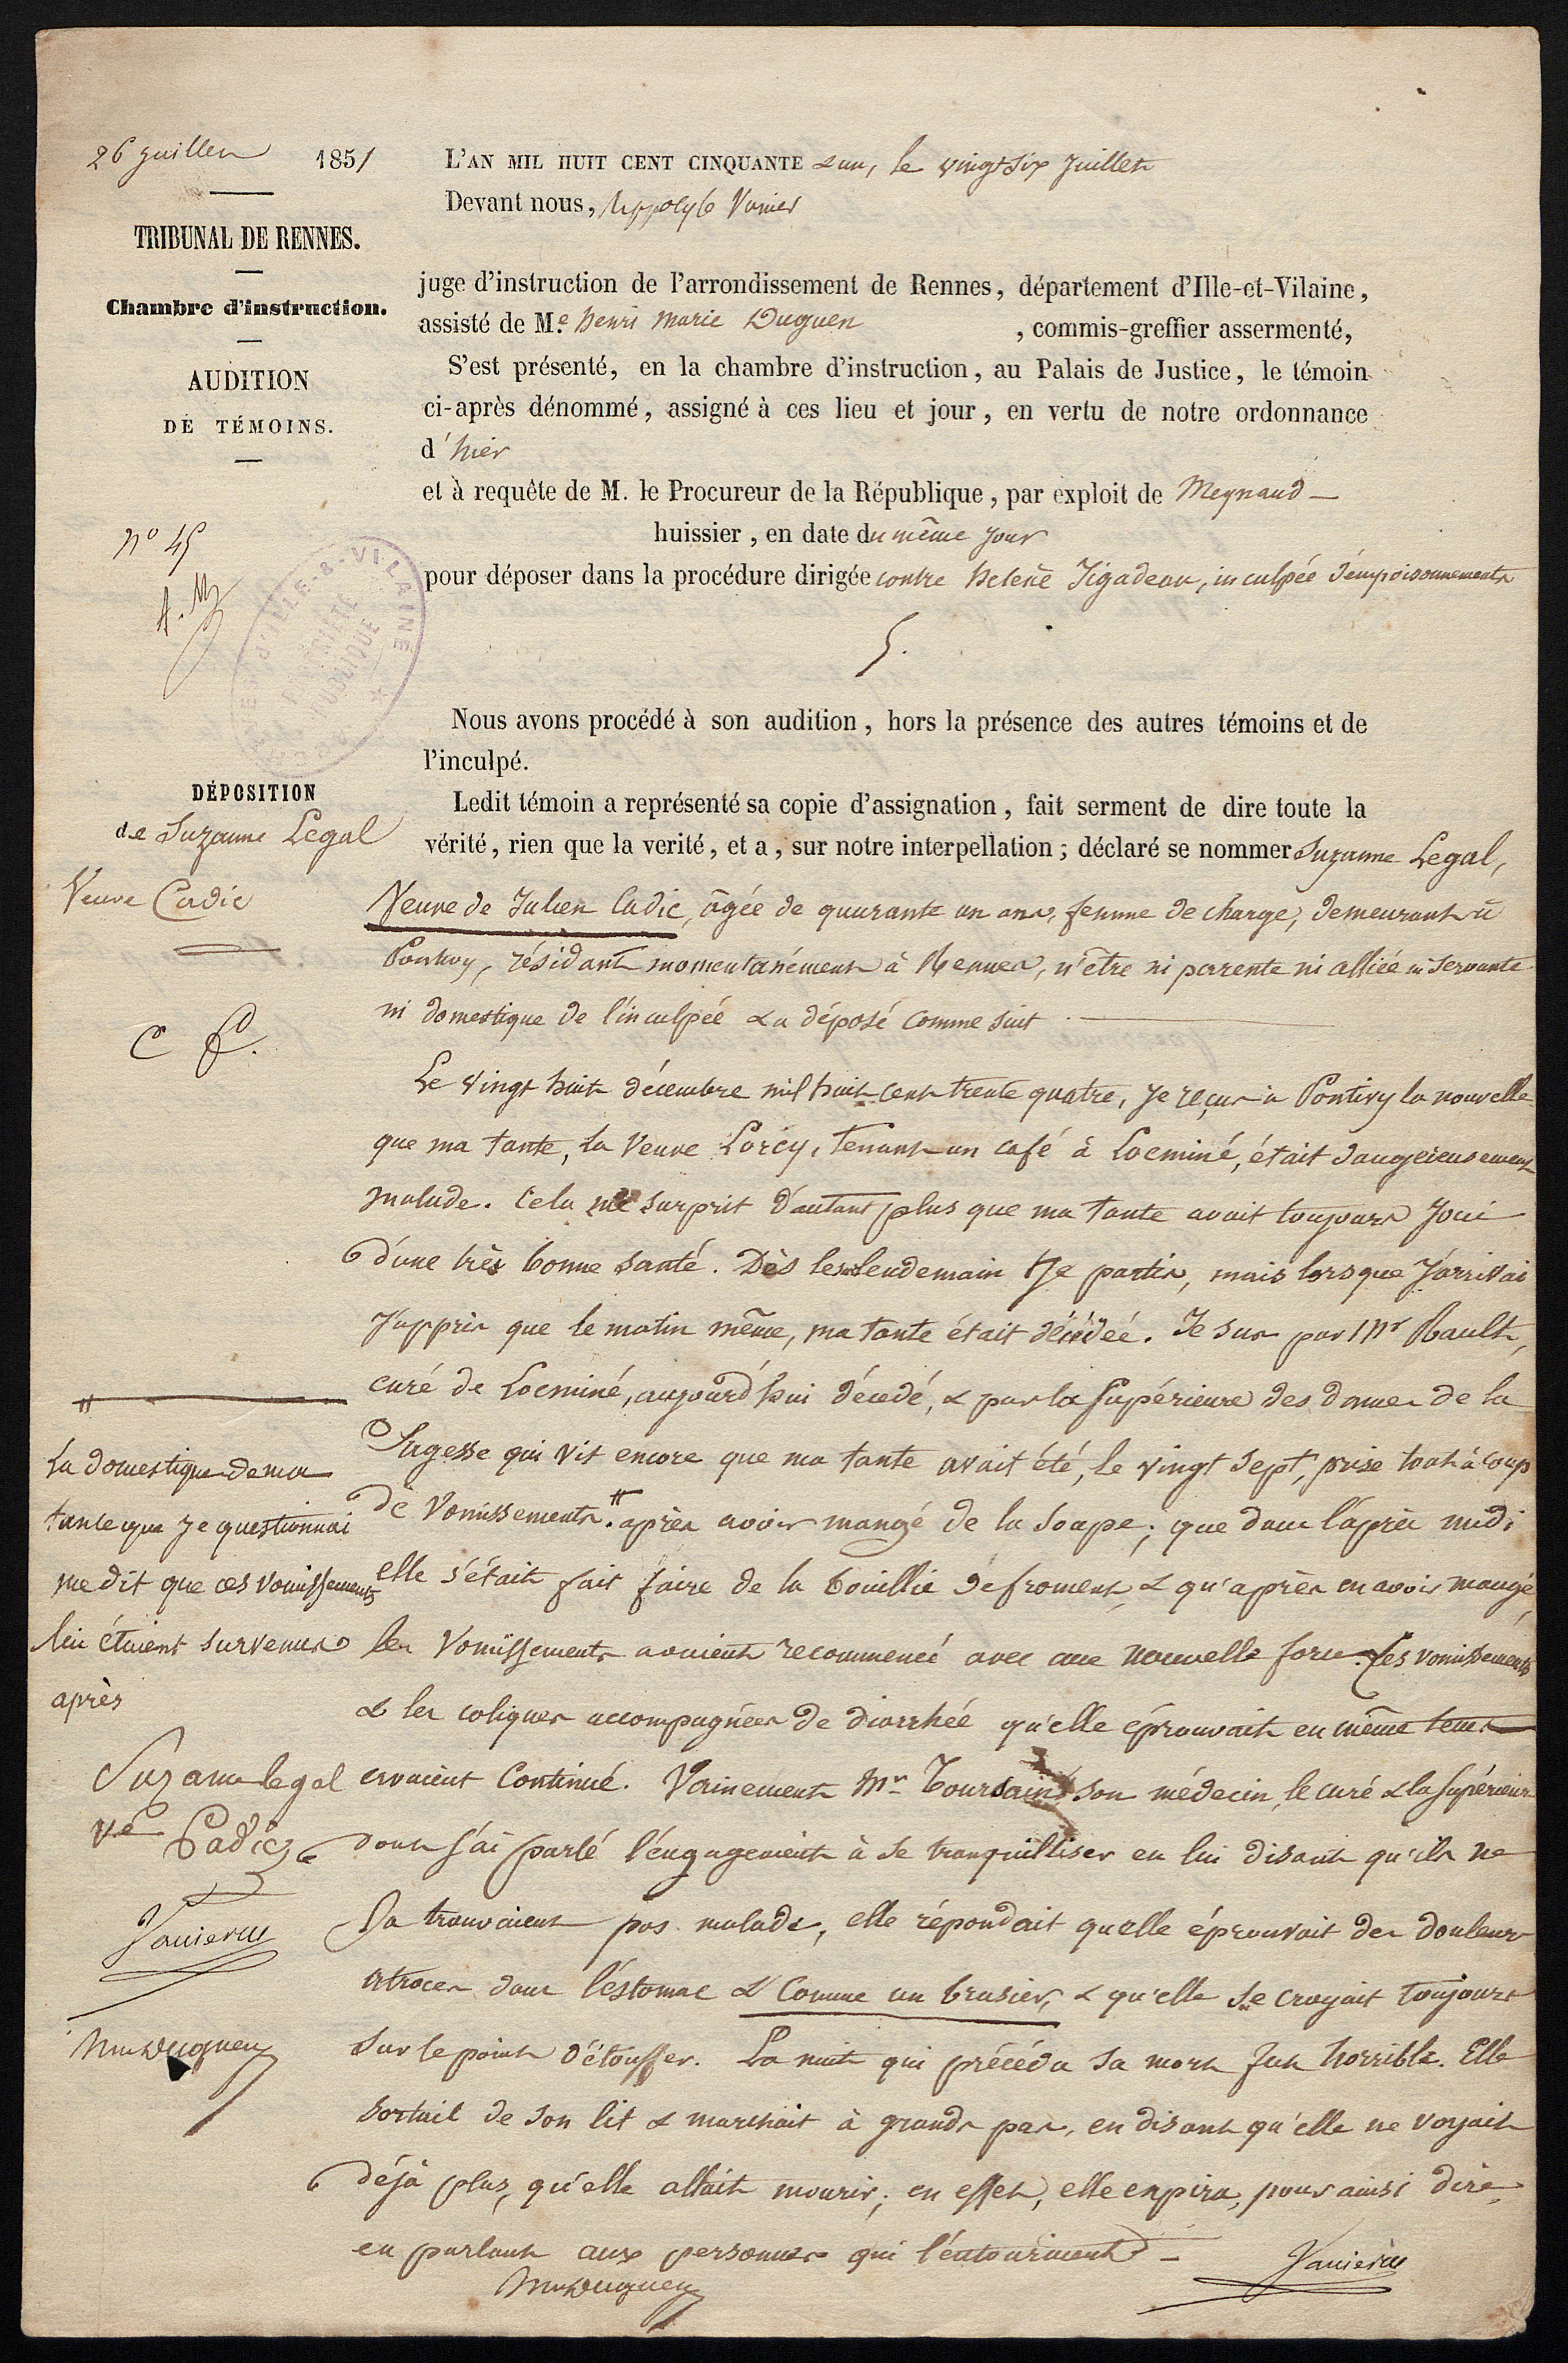 26 Juillet 1851
TRIBUNAL DE RENNES.
Chambre d'instruction.
AUDITION
DE TÉMOINS.
L'AN MIL HUIT CENT CINQUANTE & un, le vingt six Juillet
Devant nous, hippolyte Vanier
juge d'instruction de l'arrondissement de Rennes, département d'Ille-et-Vilaine,
assisté de M.e henri Marie Duguen , commis-greffier assermenté,
S'est présenté, en la chambre d'instruction, au Palais de Justice, le témoin
ci-après dénommé, assigné à ces lieu et jour, en vertu de notre ordonnance
d'hier
et à requête de M. le Procureur de la République, par exploit de Meynaud —
huissier, en date du même jour
pour déposer dans la procédure dirigée contre helène Jégadeau, inculpée d'empoisonnements
5.
n° 45
D'ILLE-&-VILAINE
PROPRIÉTÉ
PUBLIQUE
Nous avons procédé à son audition, hors la présence des autres témoins et de
l'inculpé.
Ledit témoin a représenté sa copie d'assignation, fait serment de dire toute la
vérité, rien que la verité, et a, sur notre interpellation; déclaré se nommer Suzanne Legal,
DÉPOSITION
de Suzanne Legal
Veuve Cadic
Veuve de Julien Cadic, âgée de quarante un ans, femme de charge, demeurant à
Pontivy, résidant momentanément à Rennes, n'être ni parente ni alliée ni servante
ni domestique de l'inculpée & a déposé comme suit
Le vingt huit décembre mil huit cent trente quatre, je reçus à Pontivy la nouvelle
que ma tante, la Veuve Lorcy, tenant un café à Locminé, était dangereusement
malade. Cela me surprit d'autant plus que ma tante avait toujours joui
d'une très bonne santé. Dès le lendemain je partis, mais lorsque J'arrivai
J'appris que le matin même, ma tante était décédée. Je sus par Mr Rault,
curé de Locminé, aujourd'hui décédé, & par la Supérieure des dames de la
Sagesse qui vit encore que ma tante avait été, le vingt sept, prise tout à coup
de Vomissements.# après avoir mangé de la soupe; que dans l'après midi
elle s'était fait faire de la bouillie de froment, & qu'après en avoir mangé,
les Vomissements avaient recommencé avec une nouvelle force. Ces vomissements
& les coliques accompagnées de diarrhée qu'elle éprouvait en même tems
avaient continué. Vainement Mr Toursaint son médecin, le curé & la supérieure
dont j'ai parlé l'engageaient à se tranquilliser en lui disant qu'ils ne
la trouvaient pas malade, elle répondait quelle éprouvait des douleurs
atroces dans l'éstomac & comme un brasier, & qu'elle se croyait toujours
sur le point d'étouffer. La nuit qui précéda sa mort fut horrible. Elle
sortait de son lit & marchait à grands pas, en disant qu'elle ne voyait
déjà plus, qu'elle allait mourir; en effet, elle expira, pour ainsi dire
en parlant aux personnes qui l'entouraient —
#
La domestique de ma
tante que je questionnai
me dit que ces vomissements
lui étaient survenus
après
Suzanne legal
ve Cadic
Vanier
hm Duguen
hm Duguen
Vanier